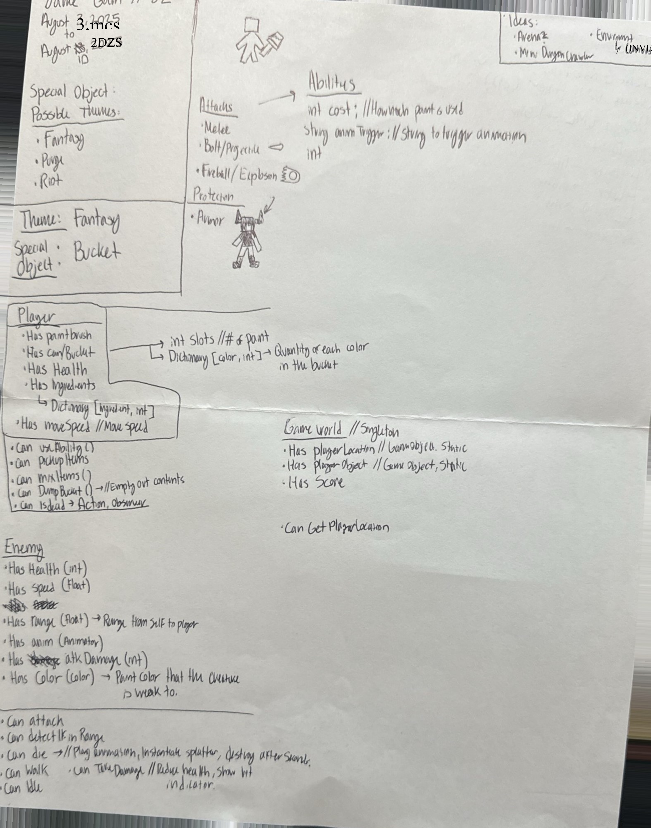 August 3, 2025
to
August 10 2025
Special Object:
Possible Themes:
• Fantasy
• Purge
• Riot
Theme: Fantasy
Special Object: Bucket
Attacks
• Melee
• Bolt/Projectile
• Fireball/Explosion
Protection
• Armor
Abilitys
int cost; //How much paint is used
string animTrigger; //String to trigger animation
int
Ideas:
• Arena
• Mini Dungeon Crawler
Player
• Has paintbrush
• Has can/Bucket
• Has Health
• Has Ingredients
↳ Dictionary [Ingredient, int]
• Has moveSpeed //Move speed
→ int slots //# of paint
↳ Dictionary [color, int] → Quantity of each color
in the bucket
• Can useAbility()
• Can pickupItems
• Can mixItems()
• Can DumpBucket() → //Empty out contents
• Can isdead → Action, observer
Gameworld //Singleton
• Has playerLocation // GameObject, Static
• Has playerObject // GameObject, Static
• Has Score
• Can Get PlayerLocation
Enemy
• Has Health (int)
• Has Speed (Float)
• Has range (Float) → Range from self to player
• Has anim (Animator)
• Has atk Damage (int)
• Has Color (color) → Paint color that the creature
is weak to.
• Can attack
• Can detect if in Range
• Can die → //Play animation, Instantiate splatter, destroy after
• Can Walk
• Can Take Damage // Reduce health, Show hit
indicator.
• Can Idle